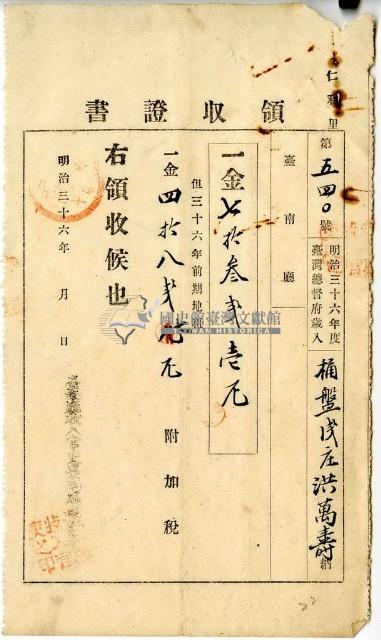 仁和里
領收證書
第五四〇號 明治三十六年度 臺灣總督府歲入
桶盤淺庄洪萬壽 納
臺南廳
一金七拾叁弐壱厘
但三十六年前期地租
一金四拾八弐 厘 附加稅
右領收候也
明治三十六年 月 日
國史館臺灣文獻館
TAIWAN HISTORICA